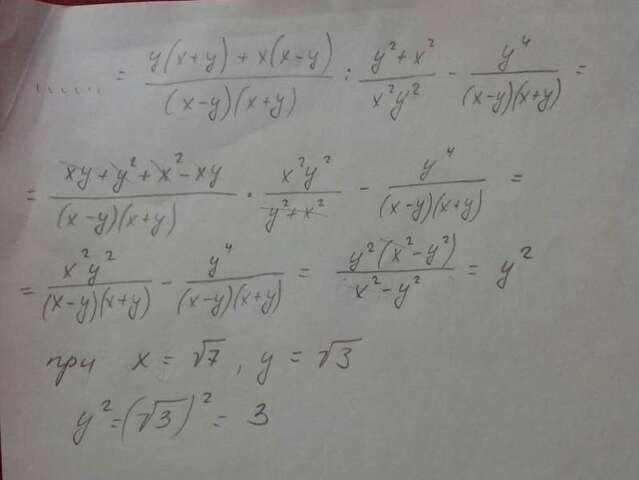 ..... = (y(x+y) + x(x-y))/((x-y)(x+y)) : (y²+x²)/(x²y²) - y⁴/((x-y)(x+y)) =
= (xy+y²+x²-xy)/((x-y)(x+y)) · x²y²/(y²+x²) - y⁴/((x-y)(x+y)) =
= x²y²/((x-y)(x+y)) - y⁴/((x-y)(x+y)) = y²(x²-y²)/(x²-y²) = y²
при x = √7, y = √3
y²=(√3)² = 3